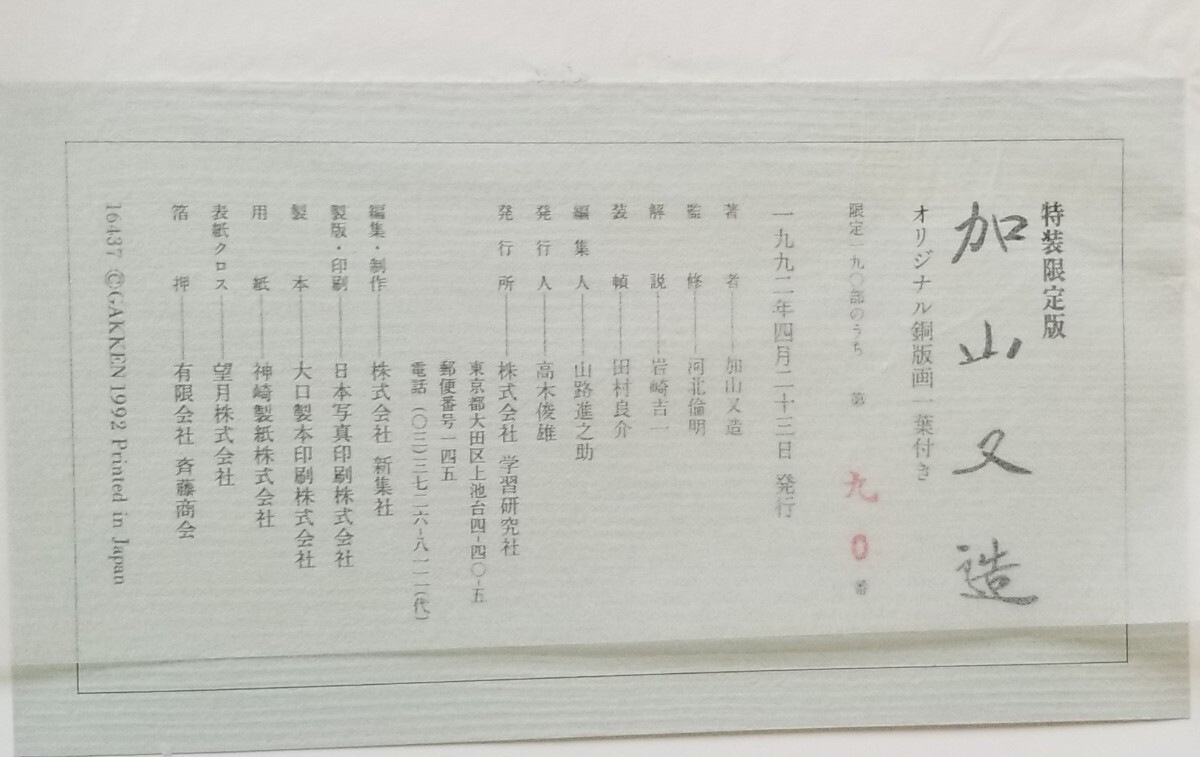 特装限定版
加山又造
オリジナル銅版画一葉付き
限定一九〇部のうち 第 九〇 番
一九九二年四月二十三日 発行
著者――加山又造
監修――河北倫明
解説――岩崎吉一
装幀――田村良介
編集人――山路進之助
発行人――高木俊雄
発行所――株式会社 学習研究社
東京都大田区上池台四-四〇-五
郵便番号一四五
電話(〇三)三七二六-八一一一(代)
編集・制作――株式会社 新集社
製版・印刷――日本写真印刷株式会社
製本――大口製本印刷株式会社
用紙――神崎製紙株式会社
表紙クロス――望月株式会社
箔押――有限会社 斉藤商会
16437 ©GAKKEN 1992 Printed in Japan